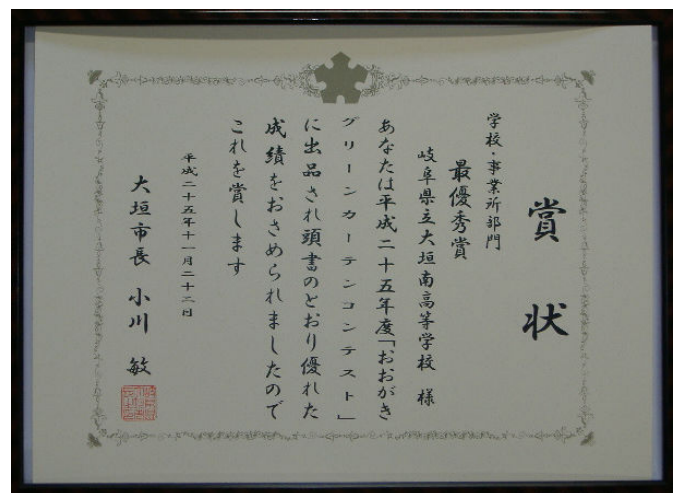 賞状
学校・事業所部門
最優秀賞
岐阜県立大垣南高等学校 様
あなたは平成二十五年度「おおがき
グリーンカーテンコンテスト」
に出品され頭書のとおり優れた
成績をおさめられましたので
これを賞します
平成二十五年十一月二十二日
大垣市長 小川 敏